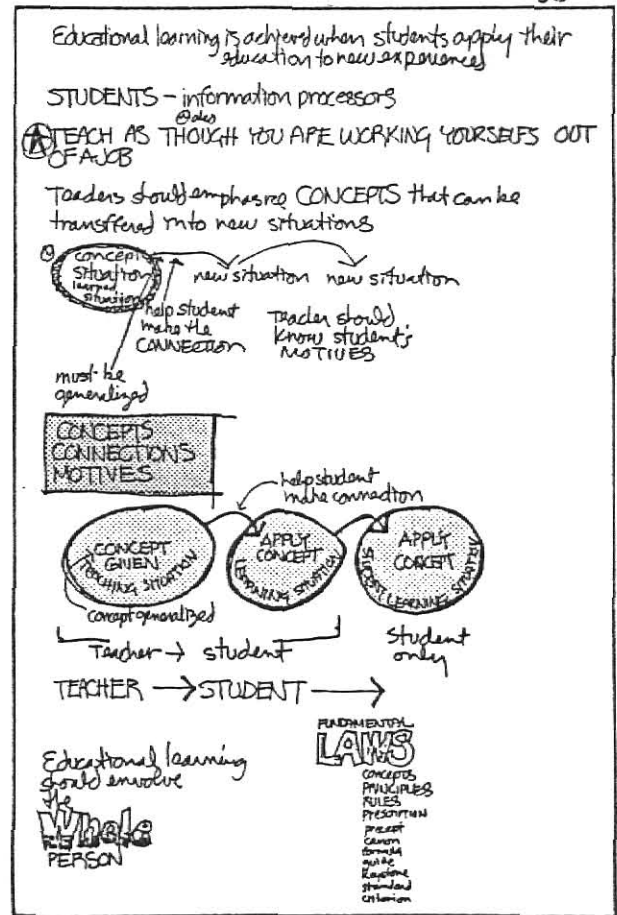 Educational learning is achieved when students apply their
education to new experiences
STUDENTS – information processors
TEACH AS THOUGH YOU ARE WORKING YOURSELFS OUT
OF A JOB
Teachers should emphasize CONCEPTS that can be
transffered into new situations
concept
situation
learned
situation
new situation
new situation
help student
make the
CONNECTION
Teacher should
know student's
MOTIVES
must be
generalized
CONCEPTS
CONNECTIONS
MOTIVES
help student
make connection
CONCEPT
GIVEN
TEACHING SITUATION
APPLY
CONCEPT
LEARNING SITUATION
APPLY
CONCEPT
STUDENT LEARNING SITUATION
concept generalized
Teacher → student
Student
only
TEACHER → STUDENT →
FUNDAMENTAL
LAWS
concepts
PRINCIPLES
RULES
PRESCRIPTION
precept
canon
formula
guide
Keystone
standard
criterion
Educational learning
should envolve
the
Whole
PERSON